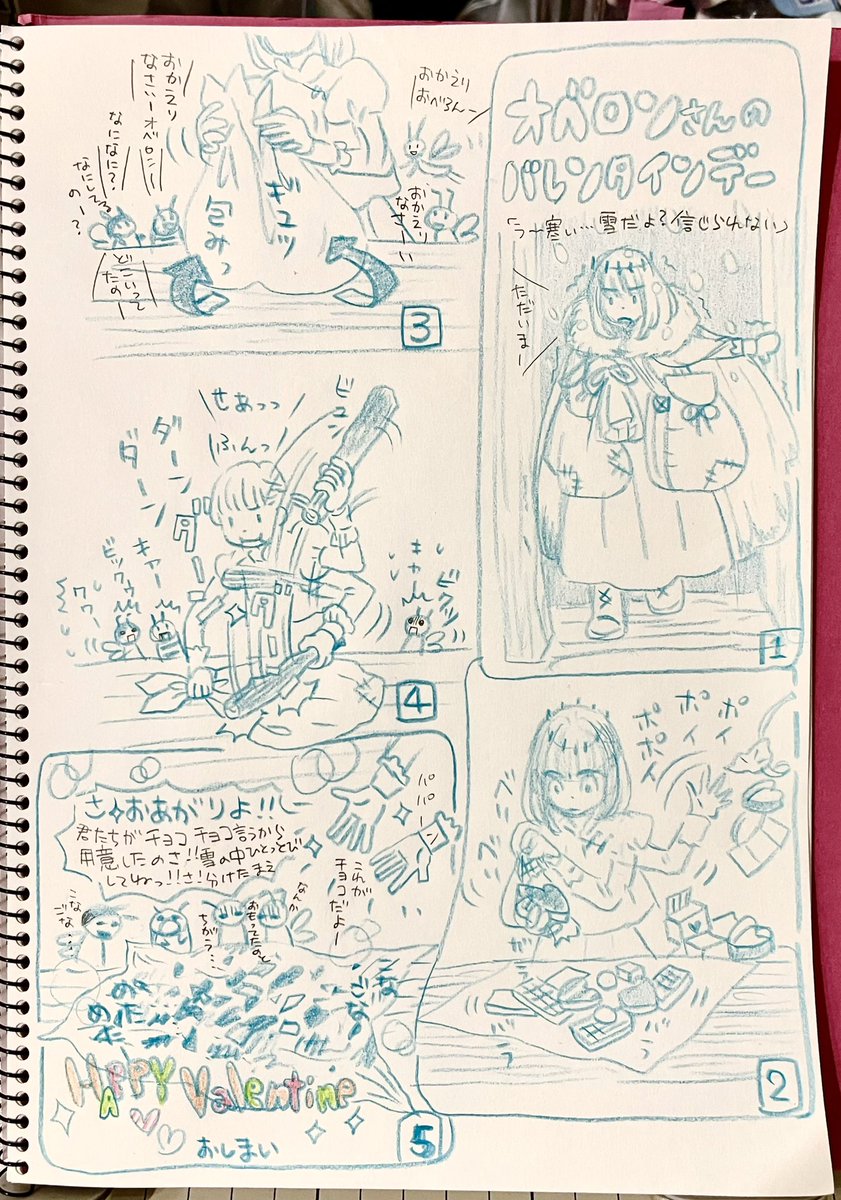 オベロンさんの
バレンタインデー
「う〜寒い…雪だよ?信じられない」
ただいまー
1
ポイ
ポイ
ポポイ
ガ
2
おかえり
おべろんー
おかえり
なさーい
おかえり
なさいーオベロンー
なになに?
なにしてる
のー?
どこいって
たのー
ギュッ
包みっ
3
せあっっ
ふんっ
ビュ
ダーン
ダーン
ダーン
キャー
ビックゥ
ワワー
キャー
ビクッ
4
さ、おあがりよ!!
君たちがチョコチョコ言うから
用意したのさ!!雪の中ひとっとび
してねっ!!さ!分けたまえ
パパーン
これが
チョコだよー
なんか
おもってたのと
ちがう…
こな
ごな…
こな
さなー
HAPPY Valentine
おしまい
5